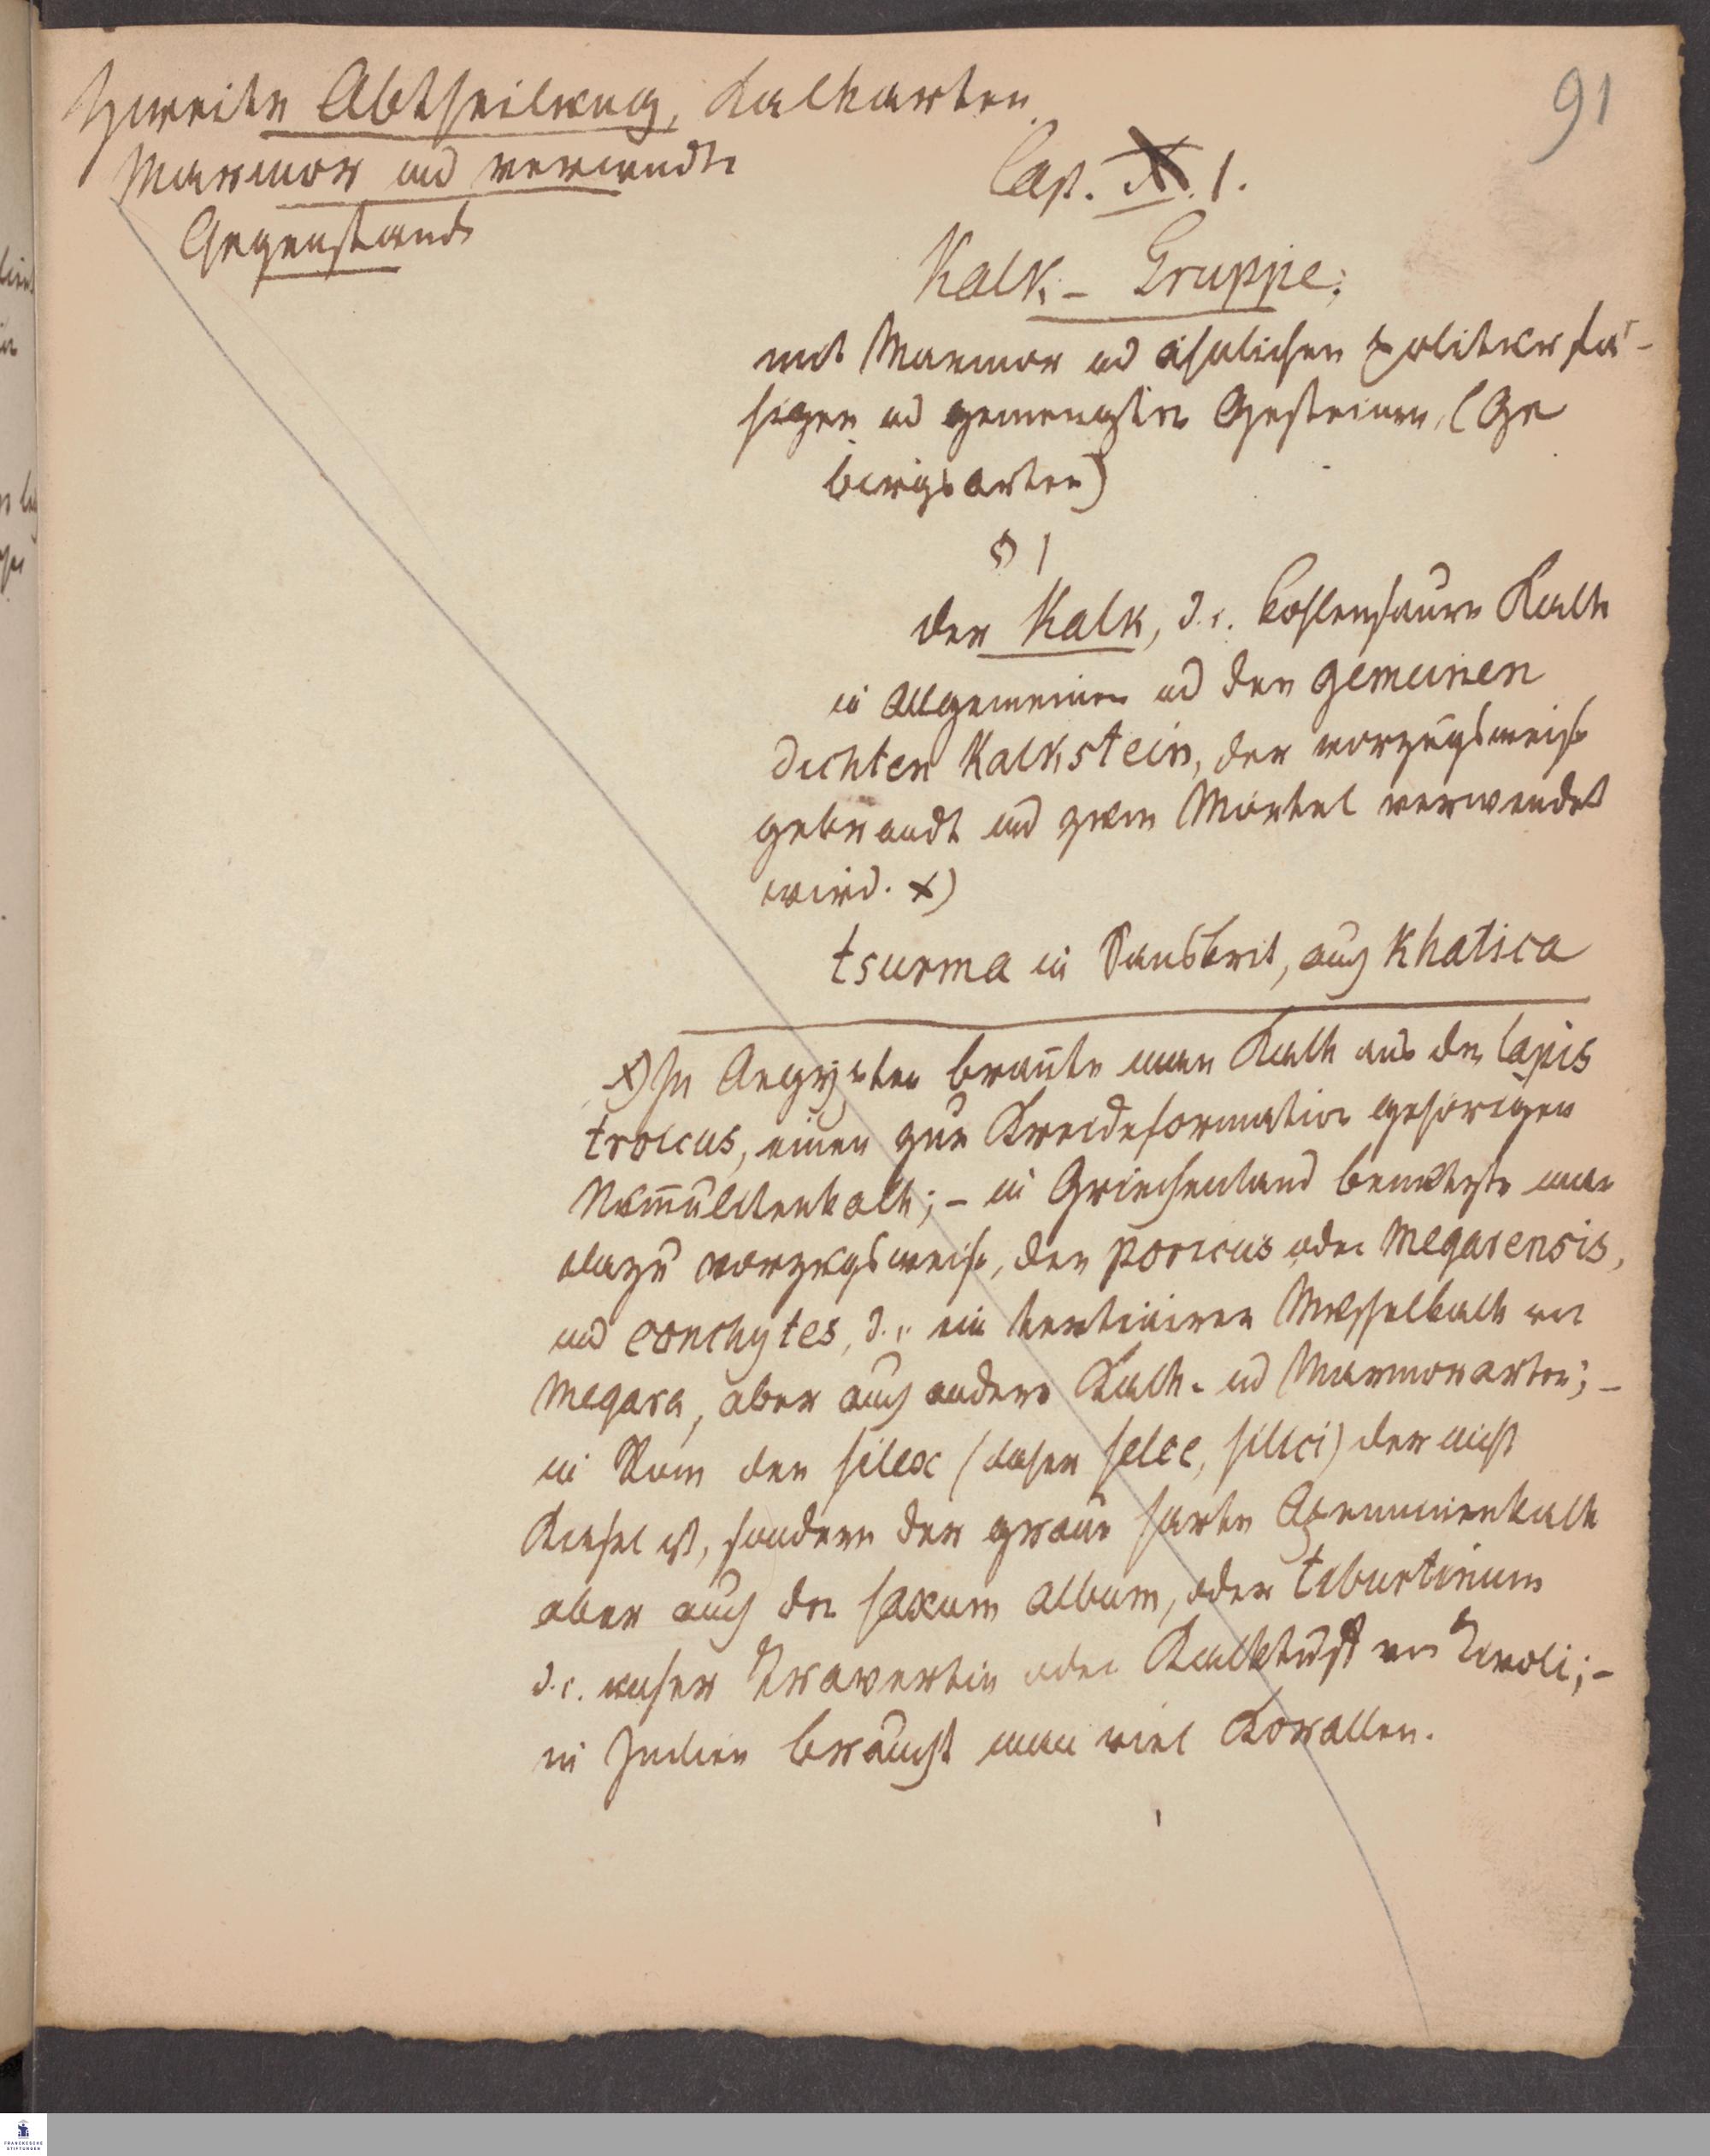 91
Zweite Abtheilung, Kalkarten
Marmor und verwandte
Gegenstände
Cap. X. 1.
Kalk-Gruppe;
mit Marmor und ähnlichen politurfä-
higen und gemengten Gesteinen, (Ge
birgsarten)
§ 1
der Kalk, d.i. kohlensaure Kalk
im Allgemeinen und der gemeinen
dichten Kalkstein, der vorzugsweise
gebrandt und zum Mörtel verwendet
wird. x)
tsurma in Sanskrit, auch Khatica
x) In Aegypten brañte man Kalk aus dem lapis
troicus, einen zur Kreideformation gehörigen
Num̃ulitenkalk; – in Griechenland benutzte man
dazu vorzugsweise, den poricus oder Megarensis,
und conchytes, d.i. ein tertiairer Muschelkalk von
Megara, aber auch andere Kalk- und Marmorarten; –
in Rom den silex (daher selce, silici) der nicht
Kiesel ist, sondern der graue harte Apenninenkalk
aber auch der saxum album, oder tiburtinum
d.i. unser Travertin oder Kalktuff von Tivoli; –
in Indien braucht man viel Korallen.
FRANCKESCHE
STIFTUNGEN